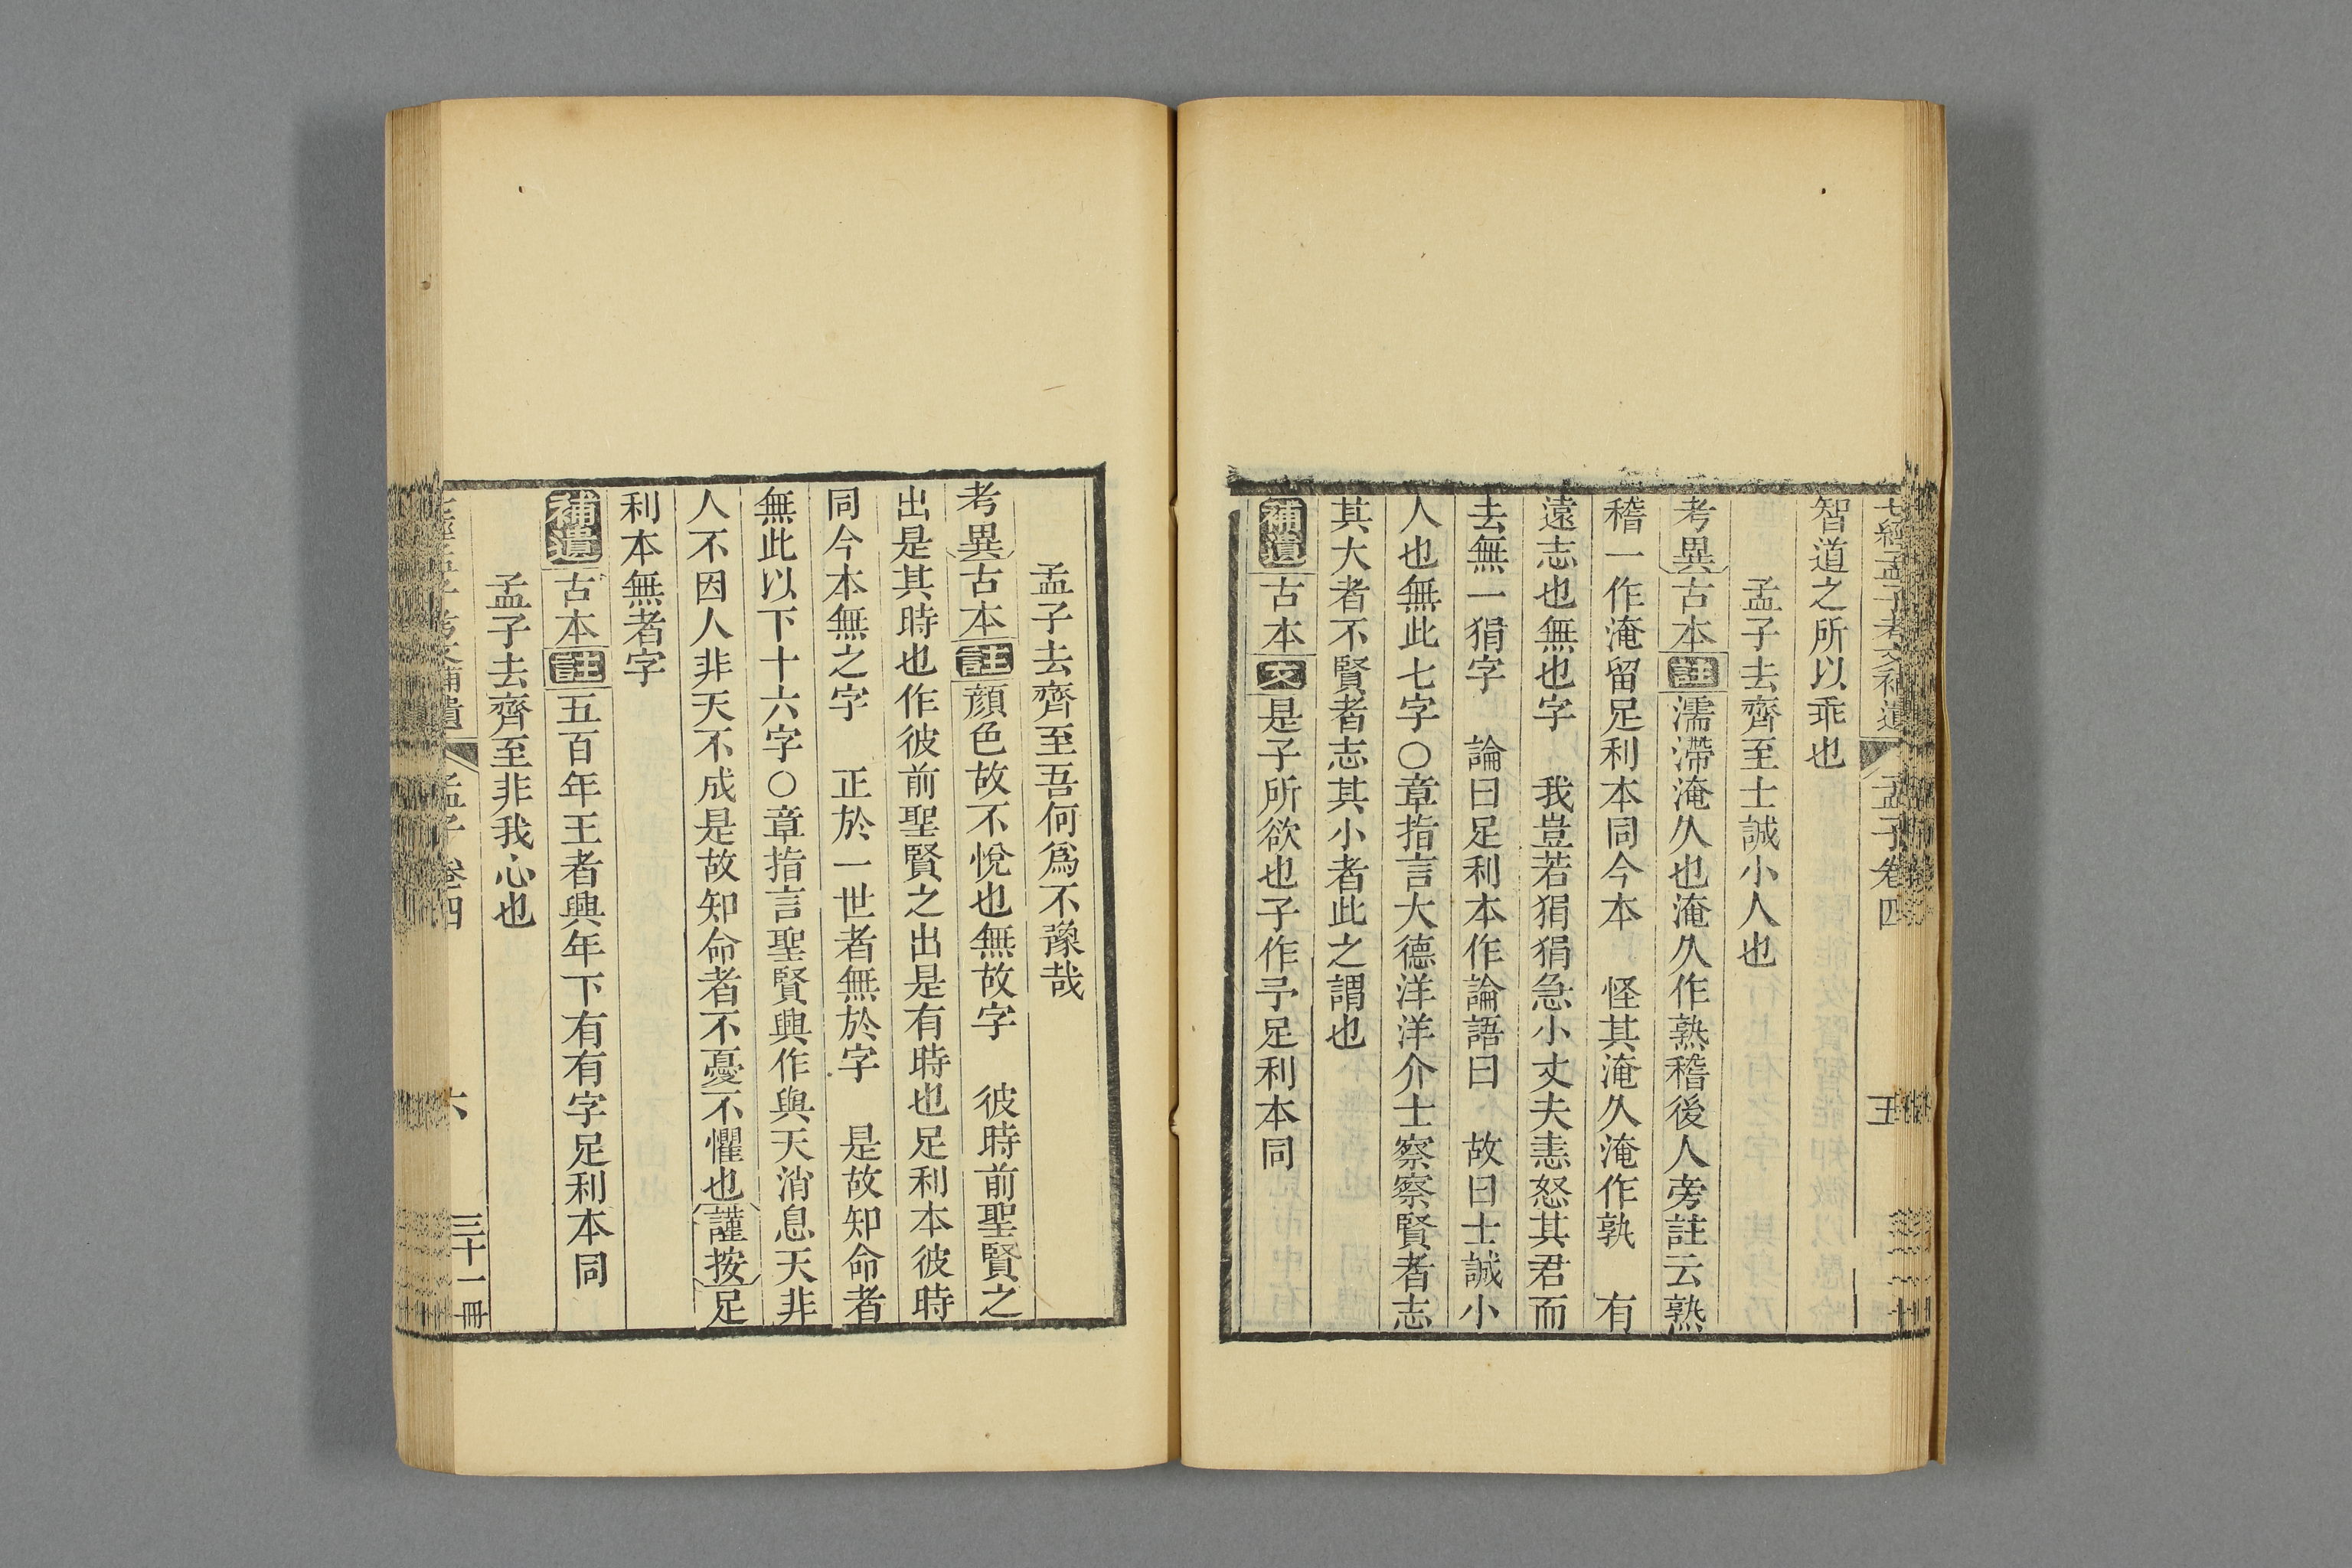 七經孟子考文補遺 孟子卷四 五
智道之所以乖也
孟子去齊至士誠小人也
考異古本註濡滯淹久也淹久作熟稽後人旁註云熟
稽一作淹留足利本同今本 怪其淹久淹作孰 有
遠志也無也字 我豈若狷狷急小丈夫恚怒其君而
去無一狷字 論曰足利本作論語曰 故曰士誠小
人也無此七字○章指言大德洋洋介士察察賢者志
其大者不賢者志其小者此之謂也
補遺古本文是子所欲也子作予足利本同
孟子去齊至吾何爲不豫哉
考異古本註顏色故不悅也無故字 彼時前聖賢之
出是其時也作彼前聖賢之出是有時也足利本彼時
同今本無之字 正於一世者無於字 是故知命者
無此以下十六字○章指言聖賢興作與天消息天非
人不因人非天不成是故知命者不憂不懼也謹按足
利本無者字
補遺古本註五百年王者興年下有有字足利本同
孟子去齊至非我心也
孟子 卷四 六 三十一冊